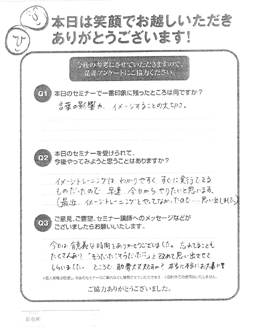 本日は笑顔でお越しいただき
ありがとうございます!
今後の参考にさせていただきますので、
是非アンケートにご協力ください
Q1 本日のセミナーで一番印象に残ったところは何ですか?
言葉の影響力、イメージすることの大切さ。
Q2 本日のセミナーを受けられて、
今後やってみようと思うことはありますか?
イメージトレーニングは、わかりやすく すぐに実行できる
ものだったので 早速 今日からやりたいと思います。
(最近、イメージトレーニングとやってなかったので…思い出しました)
Q3 ご意見、ご要望、セミナー講師へのメッセージなどが
ございましたらお願いいたします。
今日は 貴重な時間をありがとうございました。忘れてることも
たくさんあり
改めて思い出させて
もらいました。ところで
ご協力ありがとうございました。